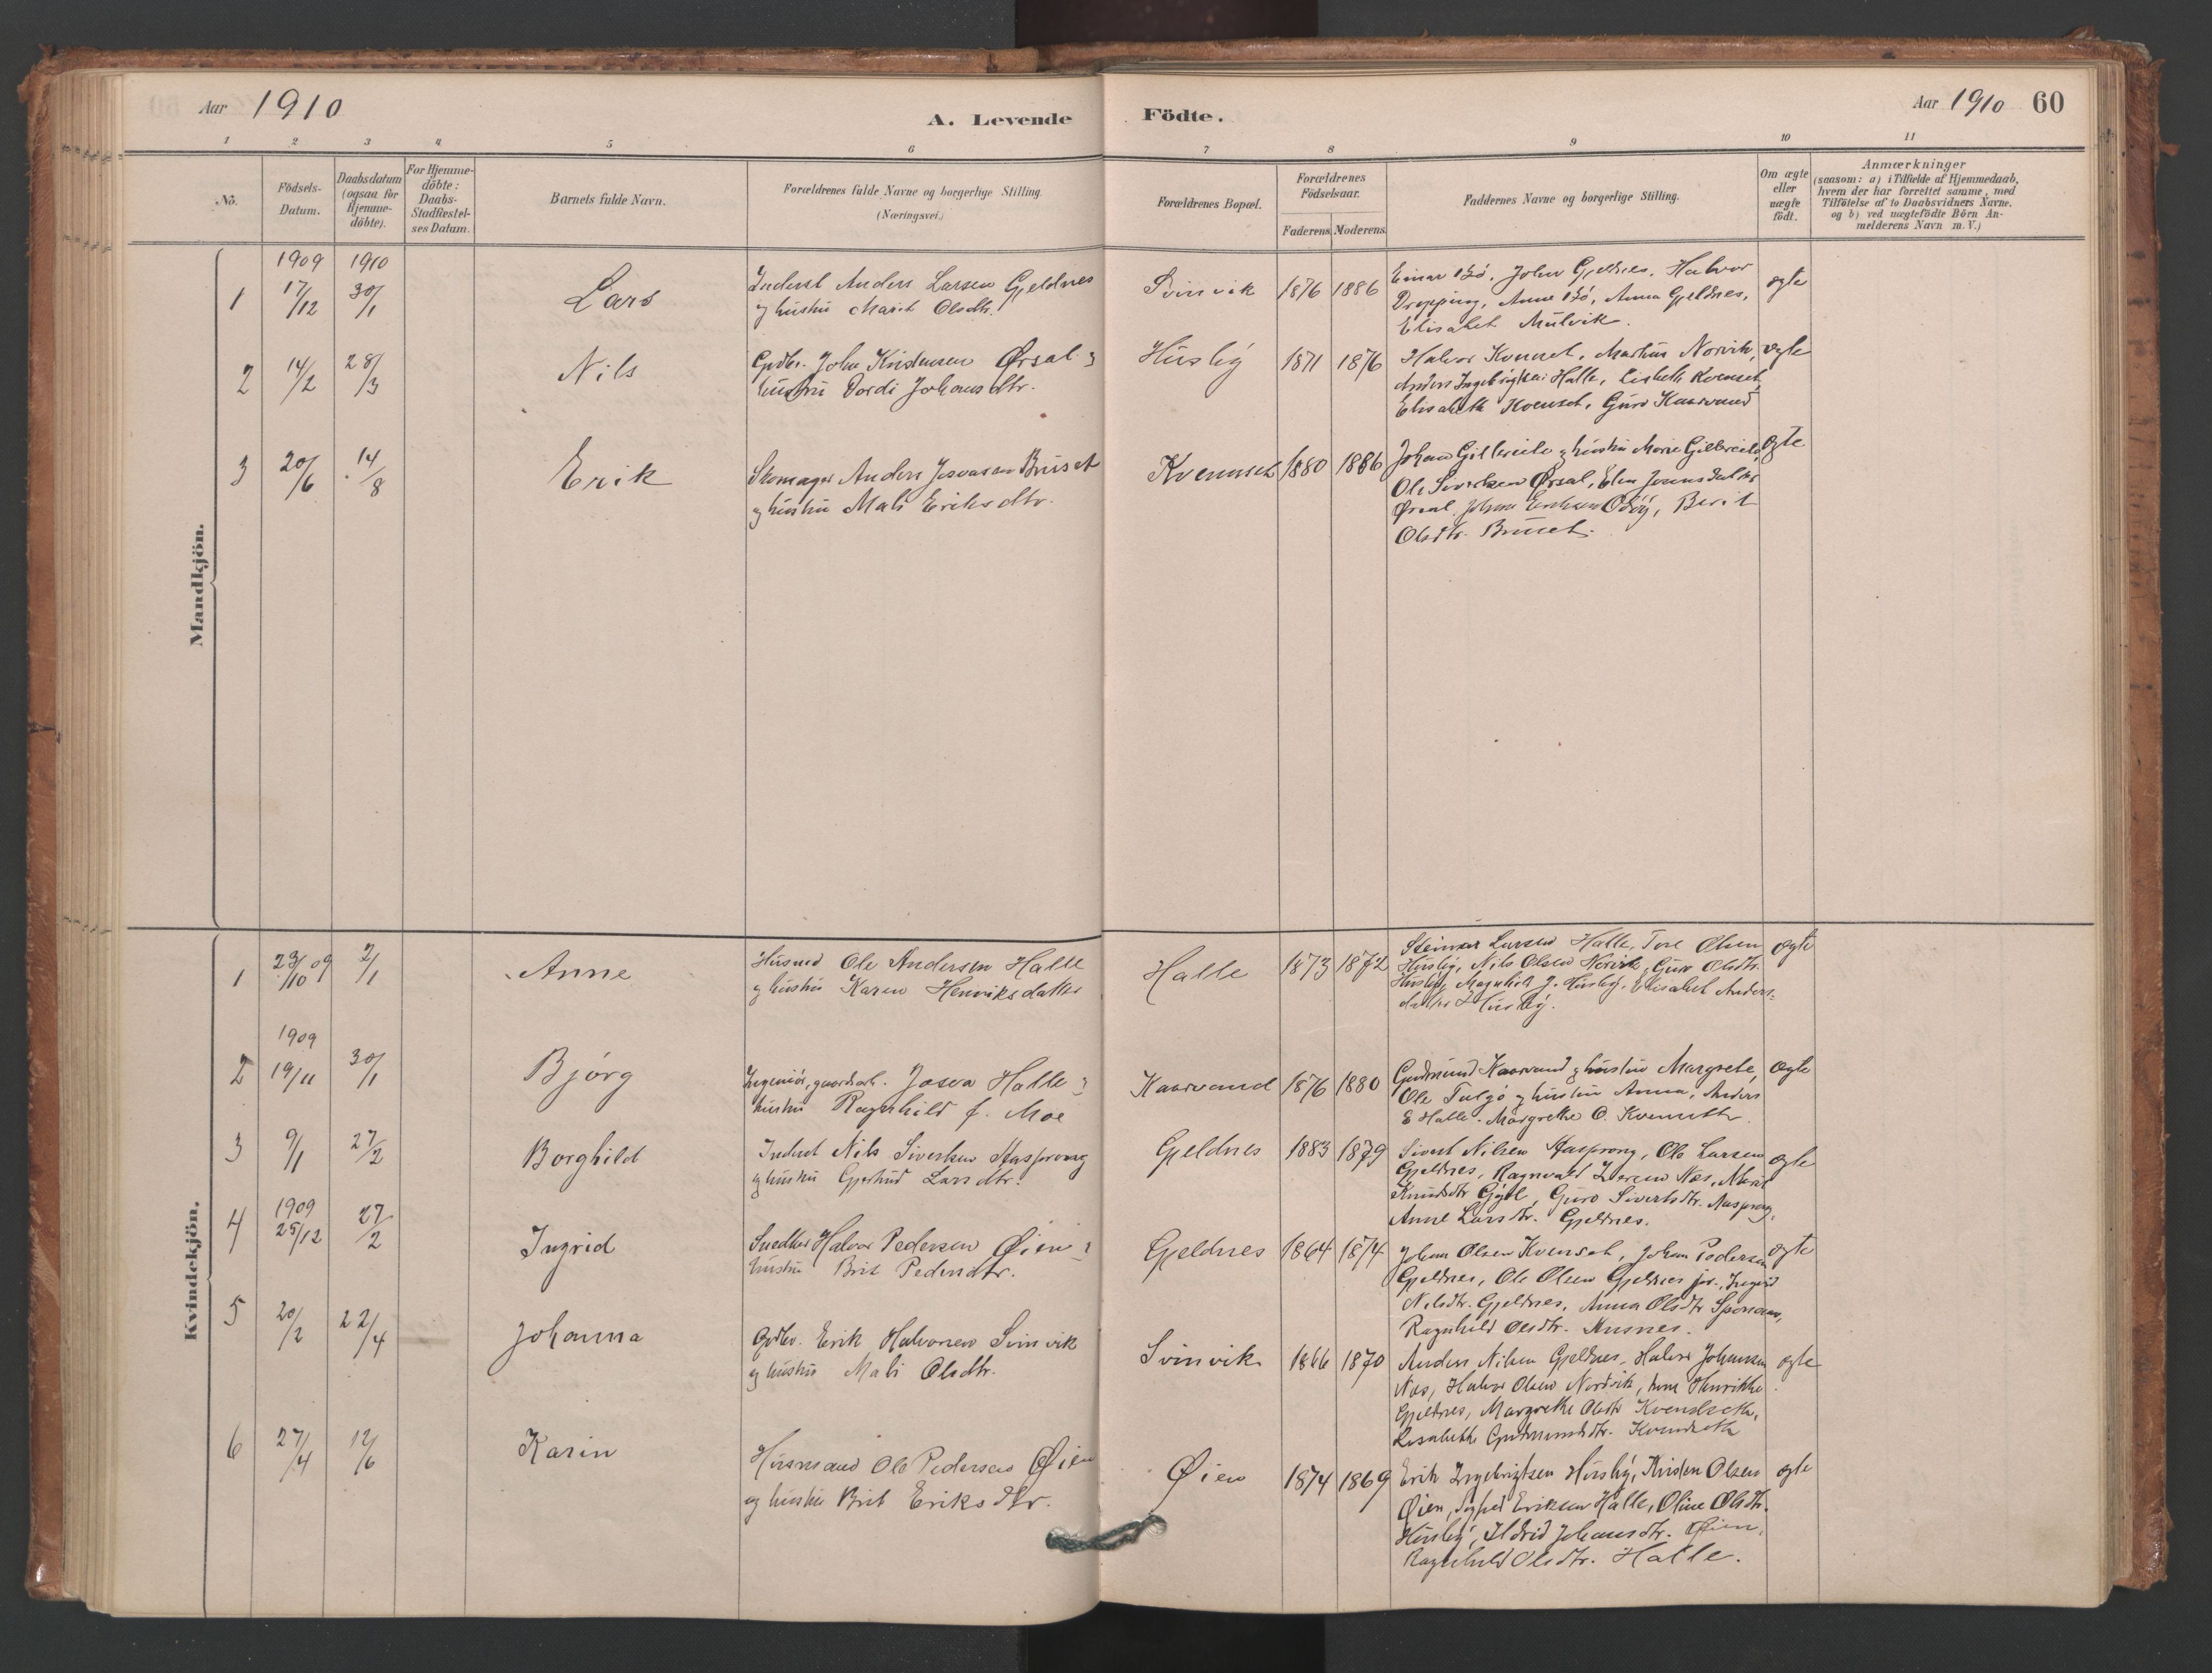 Aar 1910
A. Levende Födte.
Aar 1910 60
1 2 3 4 5 6 7 8 9 10 11
No.
Födsels-
Datum.
Daabsdatum
(ogsaa for
Hjemme-
döbte).
For Hjemme-
döbte:
Daabs-
Stadfæstel-
ses Datum.
Barnets fulde Navn.
Forældrenes fulde Navne og borgerlige Stilling.
(Næringsvei.)
Forældrenes Bopæl.
Forældrenes
Födselsaar.
Faderens. Moderens.
Faddernes Navne og borgerlige Stilling.
Om ægte
eller
uægte
födt.
Anmærkninger
(saasom: a) i Tilfælde af Hjemmedaab,
hvem der har forrettet samme, med
Tilföielse af to Daabsvidners Navne.
og b) ved uægtefödte Börn An-
melderens Navn m. V.)
Mandkjön.
1 1909 17/12 1910 30/1 Lars
Inderst Anders Larsen Gjeldnes
og hustru Marit Olsdtr.
Svinvik 1876 1886
Einar Bö, John Gjeldnes, Halvor
Dropping, Anne Bö, Anna Gjeldnes,
Elisabet Mulvik.
ægte
2 14/2 28/3 Nils
Grdbr. John Kristensen Ørsal
hustru Dordi Johansdtr.
Husby 1871 1876
Halvor Kvenset, Martin Norvik,
Anders Ingebrigtsen Halle, Lisbeth Kvenset,
Elisabeth Kvenset, Guro Kaarvand
ægte
3 20/6 14/8 Erik
Skomager Anders Josvasen Bruset
og hustru Mali Eriksdtr.
Kvennset 1880 1886
Johan Gilbreite og hustru Marie Gilbreite,
Ole Sivertsen Ørsal, Elen Jonsdatter
Ørsal, Johan Eriksen, Berit
Olsdtr. Bruset.
ægte
Kvindekjön.
1 23/10 09 2/1 Anne
Husmd Ole Andersen Halle
og hustru Karen Henriksdatter
Halle 1873 1872
Steinar Larsen Halle, Tore Olsen
Husby, Nils Olsen Norvik, Guro Olsdtr.
Husby, Magnhild J. Husby, Elisabet Anders-
datter Husby.
ægte
2 1909 19/11 30/1 Bjørg
Ingeniör, gaardsb. Josva Halle
hustru Ragnhild f. Moe
Kaarvand 1876 1880
Gudmund Kaarvand og hustru Margrete,
Ole Talgö og hustru Anna, Anders
E Halle, Margrethe O. Kvenneth
ægte
3 9/1 27/2 Borghild
Inderst Nils Sivertsen Aasprong
og hustru Gjertrud Larsdtr.
Gjeldnes 1883 1879
Sivert Nilsen Aasprong, Ole Larsen
Gjeldnes, Ragnvald Iversen Næs, Marit
Knudsdtr Gytl, Guro Sivertsdtr. Aasprong,
Anne Larsdtr. Gjeldnes.
ægte
4 1909 25/12 27/2 Ingrid
Snedker Halvor Pedersen Øien
hustru Brit Pedersdtr.
Gjeldnes 1864 1874
Johan Olsen Kvenset, Johan Pedersen
Gjeldnes, Ole Olsen Gjeldnes jor., Ingrid
Nilsdtr. Gjeldnes, Anna Olsdtr
Ragnhild Olsdtr. Husnes.
ægte
5 20/2 22/4 Johanna
Grdbr. Erik Halvorsen Svinvik
og hustru Mali Olsdtr.
Svinvik 1866 1870
Anders Nilsen Gjeldnes, Halvor Johansen
Næs, Halvor Olsen Nordvik, Anne Henrikke
Gjeldnes, Margrethe Olsdtr Kvendseth,
Lisabeth Gudmundsdtr. Kvendseth
ægte
6 27/4 12/6 Karin
Husmand Ole Pedersen Øien
og hustru Brit Eriksdtr.
Øien 1874 1869
Erik Ingebrigtsen Husby, Kristen Olsen
Øien, Sigfred Eriksen Halle, Oline Olsdtr.
Husby, Ildrid Johansdtr. Øien,
Ragnhild Olsdtr. Halle.
ægte